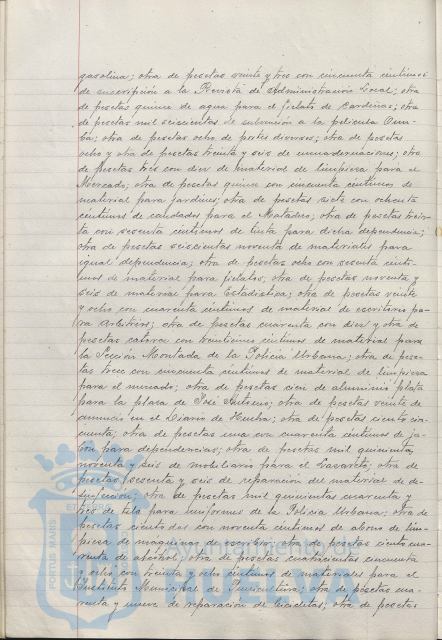 gasolina; otra de pesetas veinte y tres con cincuenta céntimos
de suscripción a la Revista de Administración Local; otra
de pesetas quince de agua para el fielato de Cardeñas; otra
de pesetas mil seiscientas de subvención a la película
otra de pesetas ocho de portes diversos; otra de pesetas
ocho y otra de pesetas treinta y seis de encuadernaciones; otra
de pesetas tres con diez de material de limpieza para el
Mercado; otra de pesetas quince con cincuenta céntimos de
material para jardines; otra de pesetas siete con ochenta
céntimos de candados para el Matadero; otra de pesetas trein-
ta con sesenta céntimos de tinta para dicha dependencia;
otra de pesetas seiscientas noventa de materiales para
igual dependencia; otra de pesetas ocho con sesenta cénti-
mos de material para fielatos; otra de pesetas noventa y
seis de material para Estadística; otra de pesetas veinte
y ocho con cuarenta céntimos de material de escritorio pa-
ra Arbitrios; otra de pesetas cuarenta con diez y otra de
pesetas catorce con céntimos de material para
la Sección Montada de la Policía Urbana; otra de pese-
tas trece con cincuenta céntimos de material de limpieza
para el mercado; otra de pesetas cien de aluminio plata
para la plaza de José Antonio; otra de pesetas veinte de
anuncio en el Diario de Huelva; otra de pesetas ciento cin-
cuenta; otra de pesetas una con cuarenta céntimos de ja-
bón para dependencias; otra de pesetas mil quinientas
noventa y seis de mobiliario para el Lazareto; otra de
pesetas sesenta y seis de reparación del material de de-
sinfección; otra de pesetas mil quinientas cuarenta y
tres de tela para uniformes de la Policía Urbana; otra de
pesetas ciento dos con noventa céntimos de abono de lim-
pieza de máquinas de escribir; otra de pesetas ciento cua-
renta de alcohol; otra de pesetas cuatrocientas cincuenta
y ocho con treinta y ocho céntimos de materiales para el
Instituto Municipal de Puericultura; otra de pesetas cua-
renta y nueve de reparación de bicicletas; otra de pesetas
PORTUS MARIS
Ayuntamiento de